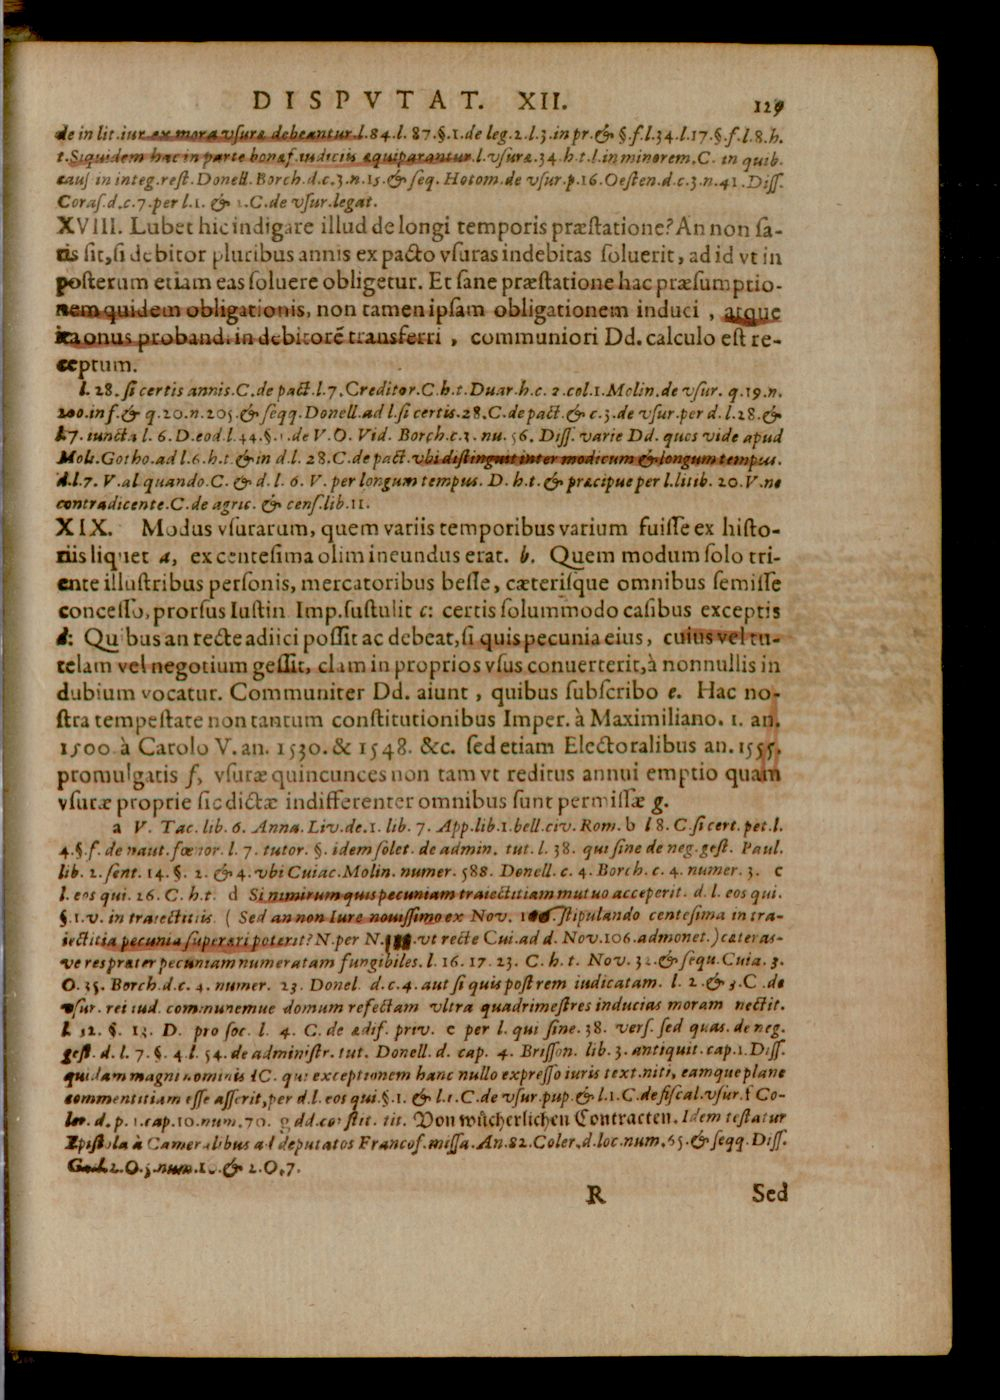 DISPVTAT. XII. 129
de in lit. iur. ex mora vsuræ debeantur. l. 84. l. 87. §. 1. de leg. 2. l. 3. in pr. & §. f. l. 34. l. 17. §. f. l. 8. h.
t. Siquidem hac in parte bonæ f. iudiciis æquiparantur. l. vsuræ. 34. h. t. l. in minorem. C. in quib.
caus. in integ. rest. Donell. Borch. d. c. 3. n. 15. & seq. Hotom. de vsur. p. 16. Oesten. d. c. 3. n. 41. Diss.
Coras. d. c. 7. per l. 1. & 2. C. de vsur. legat.
XVIII. Lubet hic indigare illud de longi temporis præstatione? An non sa-
tis sit, si debitor pluribus annis ex pacto vsuras indebitas soluerit, ad id vt in
posterum etiam eas soluere obligetur. Et sane præstatione hac præsumptio-
nem quidem obligationis, non tamen ipsam obligationem induci, atque
ita onus probandi in debitorẽ transferri, communiori Dd. calculo est re-
ceptum.
l. 28. si certis annis. C. de pact. l. 7. Creditor. C. h. t. Duar. h. c. 2. col. 1. Molin. de vsur. q. 19. n.
200. in f. & q. 20. n. 205. & seqq. Donell. ad l. si certis. 28. C. de pact. & c. 3. de vsur. per d. l. 28. &
l. 7. iuncta l. 6. D. eod. l. 44. §. 1. de V. O. Vid. Borch. c. 3. nu. 56. Diss. varie Dd. quos vide apud
Mol. Gotho. ad l. 6. h. t. & in d. l. 28. C. de pact. vbi distinguit inter modicum & longum tempus.
d. l. 7. V. al quando. C. & d. l. 6. V. per longum tempus. D. h. t. & præcipue per l. litib. 20. V. ne
contradicente. C. de agric. & cens. lib. 11.
XIX. Modus vsurarum, quem variis temporibus varium fuisse ex histo-
riis liquet a, ex centesima olim ineundus erat. b. Quem modum solo tri-
ente illustribus personis, mercatoribus besse, cæterisque omnibus semisse
concesso, prorsus Iustin Imp. sustulit c: certis solummodo casibus exceptis
d: Quibus an recte adiici possit ac debeat, si quis pecunia eius, cuius vel tu-
telam vel negotium gessit, clam in proprios vsus conuerterit, à nonnullis in
dubium vocatur. Communiter Dd. aiunt, quibus subscribo e. Hac no-
stra tempestate non tantum constitutionibus Imper. à Maximiliano. 1. an.
1500 à Carolo V. an. 1530. & 1548. &c. sed etiam Electoralibus an. 1555.
promulgatis f, vsuræ quincunces non tam vt reditus annui emptio quam
vsuræ proprie sic dictæ indifferenter omnibus sunt permissæ g.
a V. Tac. lib. 6. Anna. Liv. de. 1. lib. 7. App. lib. 1. bell. civ. Rom. b l 8. C. si cert. pet. l.
4. §. f. de naut. fœnor. l. 7. tutor. §. idem solet. de admin. tut. l. 38. qui sine de neg. gest. Paul.
lib. 2. sent. 14. §. 2. & 4. vbi Cuiac. Molin. numer. 588. Donell. c. 4. Borch. c. 4. numer. 3. c
l. eos qui. 26. C. h. t. d Si nimirum quis pecuniam traiectitiam mutuo acceperit. d. l. eos qui.
§. 1. v. in traiectitiis. ( Sed an non Iure nouissimo ex Nov. 106. stipulando centesima in tra-
iectitia pecunia superari poterit? N. per N. vt recte Cui. ad d. Nov. 106. admonet.) cæteras-
ve res præter pecuniam numeratam fungibiles. l. 16. 17. 23. C. h. t. Nov. 32. & sequ. Cuia. 3.
O. 35. Borch. d. c. 4. numer. 23. Donel. d. c. 4. aut si quis post rem iudicatam. l. 2. & 3. C. de
vsur. rei iud. communemue domum refectam vltra quadrimestres inducias moram nectit.
l 52. §. 13. D. pro soc. l. 4. C. de ædif. priv. e per l. qui sine. 38. vers. sed quas. de neg.
gest. d. l. 7. §. 4. l. 54. de administr. tut. Donell. d. cap. 4. Brisson. lib. 3. antiquit. cap. 1. Diss.
quidam magni nominis IC. qui exceptionem hanc nullo expresso iuris text. niti, eamque plane
commentitiam esse asserit, per d. l. eos qui. §. 1. & l. 1. C. de vsur. pup. & l. 1. C. de fiscal. vsur. f Co-
ler. d. p. 1. cap. 10. num. 70. g dd. constit. tit. Von wůcherlichen Contracten. Idem testatur
Epistola à Cameralibus ad deputatos Francof. missa. An. 82. Coler. d. loc. num. 65. & seqq. Diss.
Gail. 2. O. 5. num. 10. & 2. O. 7.
R Sed